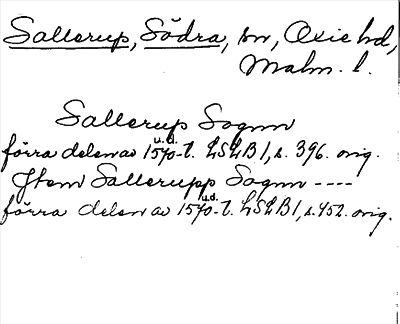 Sallerup, Södra, sn, Oxie hd,
Malm. l.
Sallerup Sognn
u.d.
förra delen av 1570-t. LSLB I, s. 396. orig.
Jtem Sallerupp Sognn ----
u.d.
förra delen av 1570-t. LSLB I, s. 452. orig.